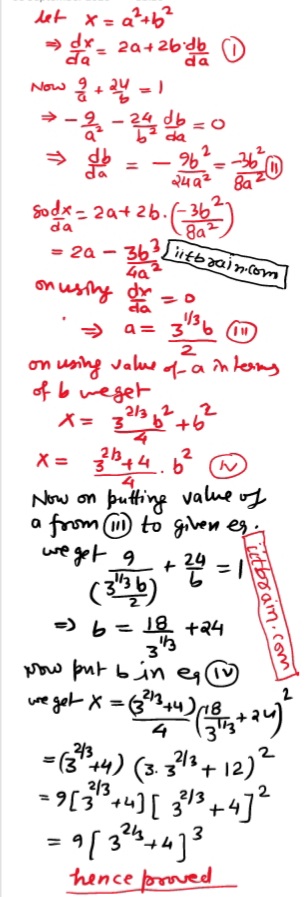 let x = a²+b²
⇒ dx/da = 2a+2b.db/da (I)
Now 9/a + 24/b = 1
⇒ -9/a² - 24/b² db/da = 0
⇒ db/da = -9b²/24a² = -3b²/8a² (II)
so dx/da = 2a+2b.(-3b²/8a²)
= 2a - 3b³/4a² iitbrain.com
on using dx/da = 0
⇒ a = 3^{1/3}b/2 (III)
on using value of a in terms
of b we get
x = 3^{2/3}b²/4 + b²
x = 3^{2/3}+4/4 . b² (IV)
Now on putting value of
a from (III) to given eq.
we get 9/(3^{1/3}b/2) + 24/b = 1
⇒ b = 18/3^{1/3} +24
iitbrain.com
Now put b in eq (IV)
we get x = (3^{2/3}+4)/4 (18/3^{1/3} + 24)²
= (3^{2/3}+4) (3.3^{2/3} + 12)²
= 9[3^{2/3}+4] [3^{2/3} + 4]²
= 9[3^{2/3}+4]³
hence proved